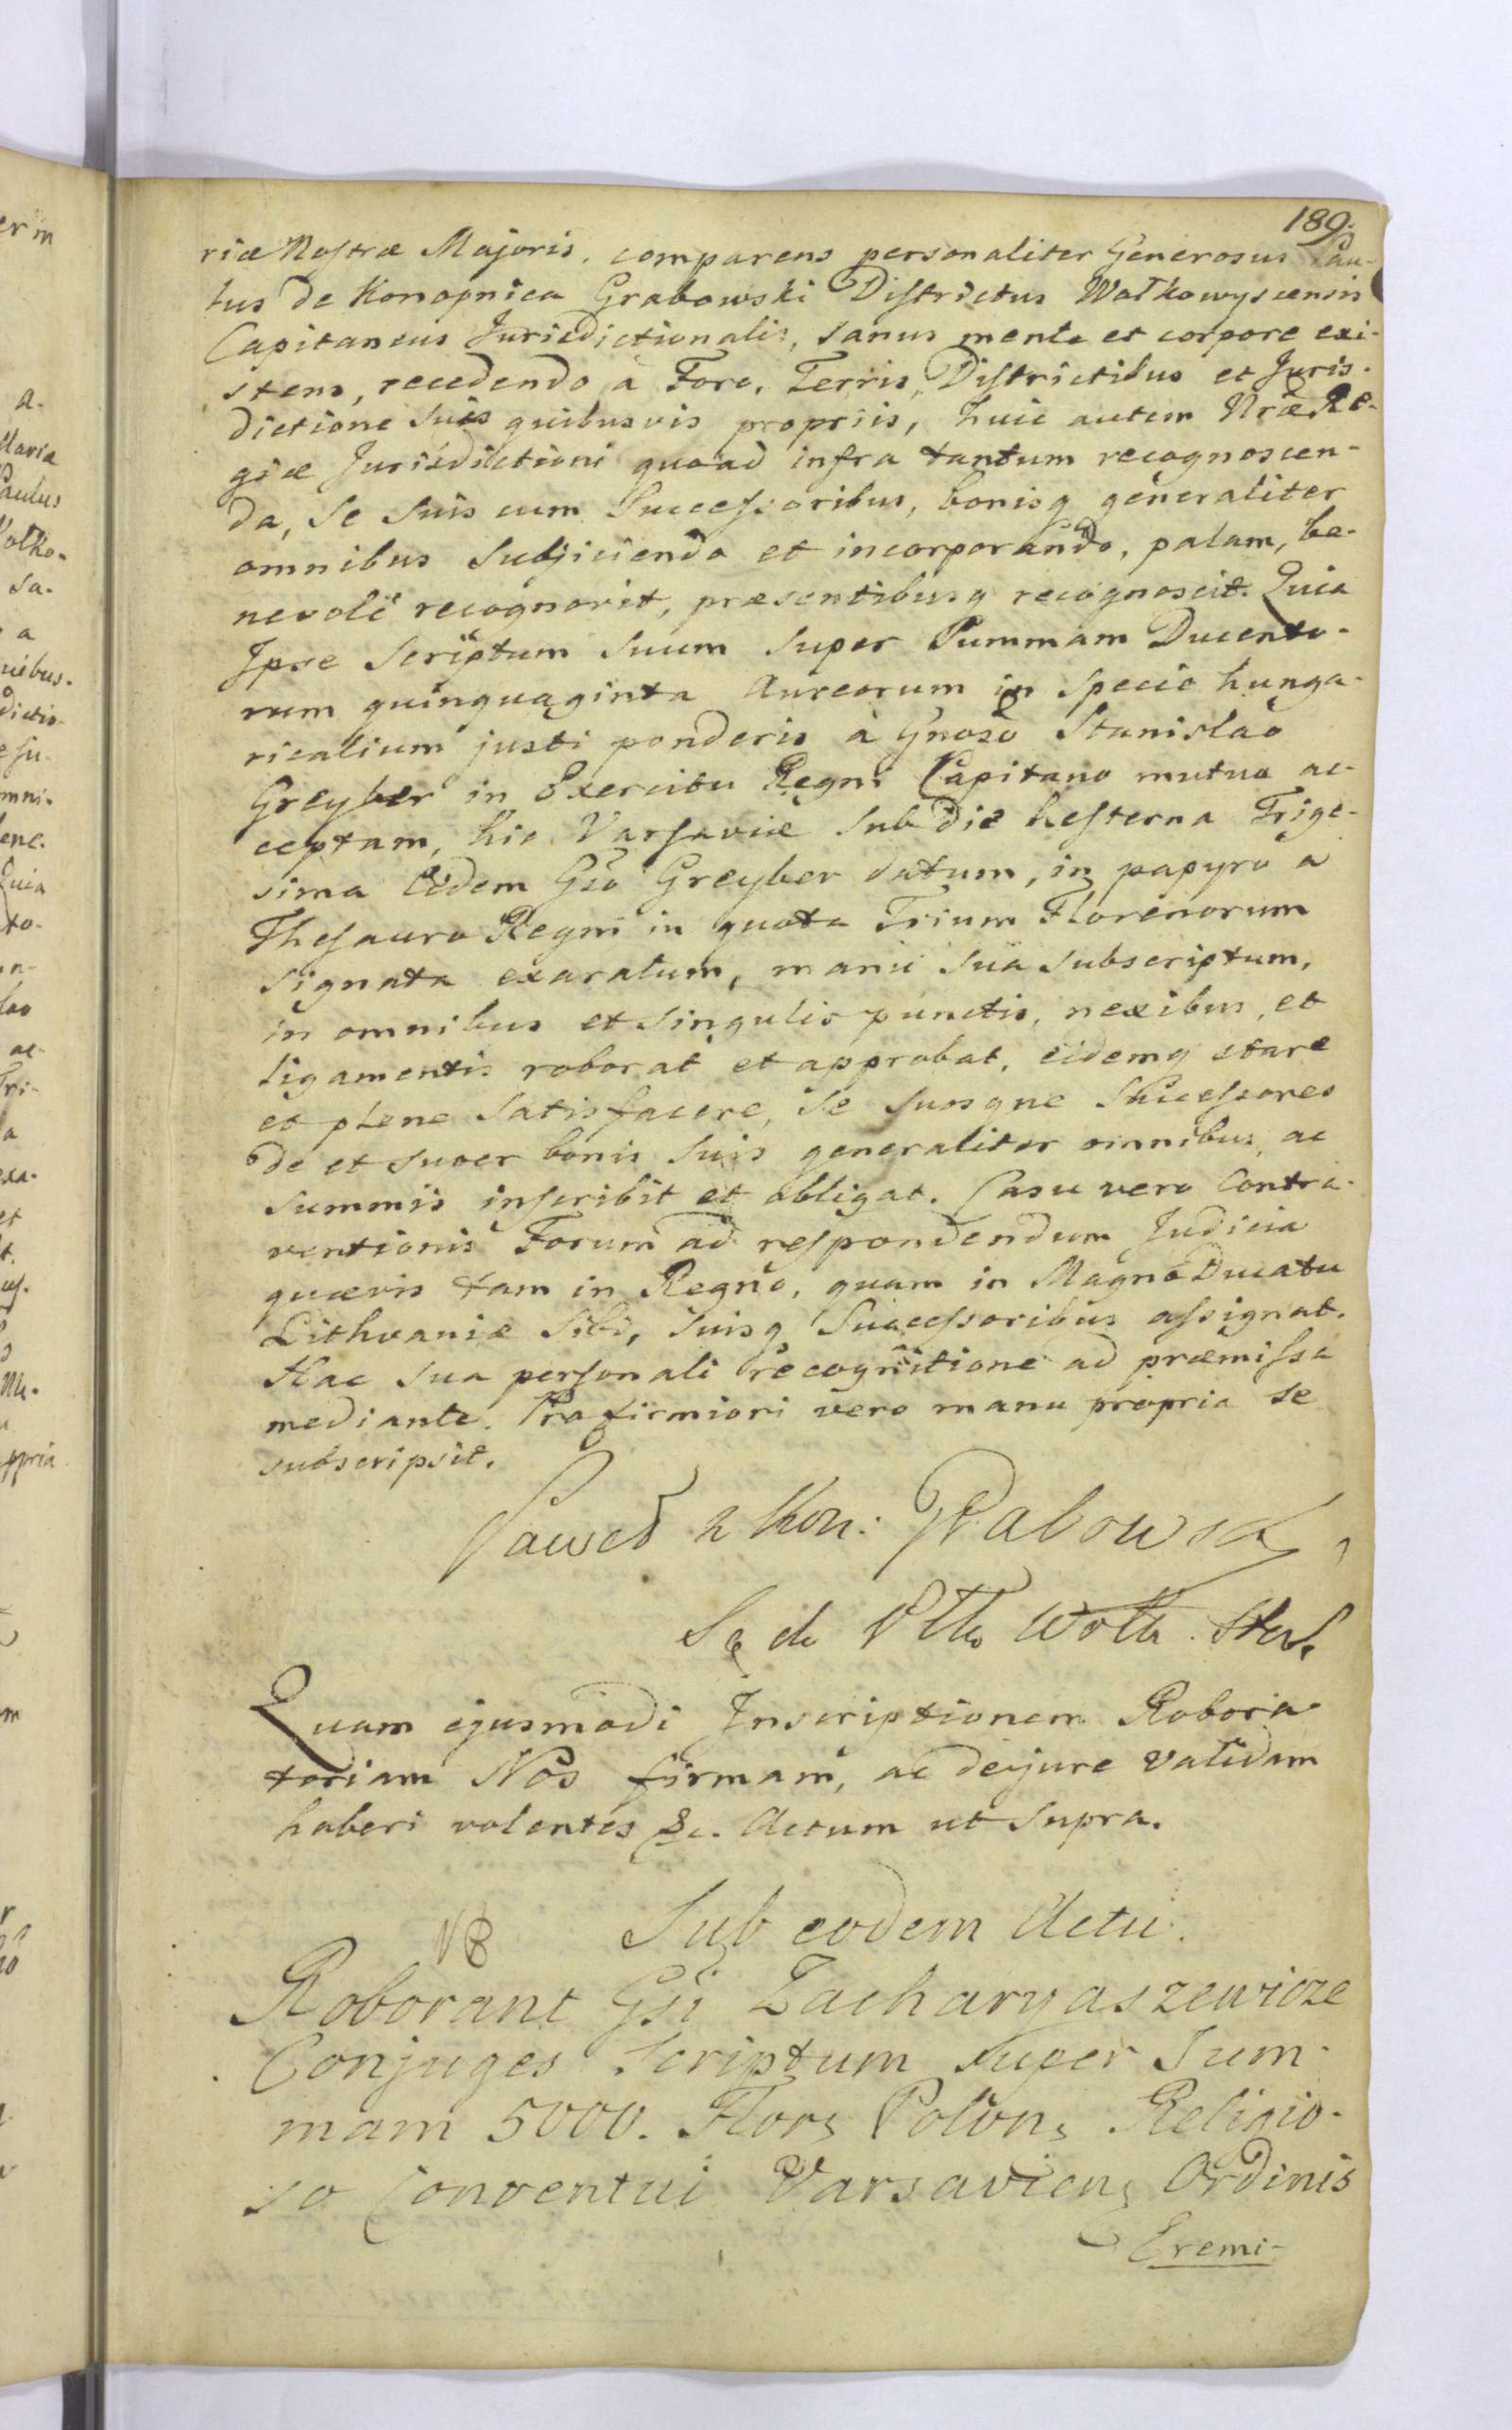 189.
riæ Nostræ Majoris, comparens personaliter Generosus Pau-
lus de Konopnica Grabowski Districtus Wołkowyscensis
Capitaneus Jurisdictionalis, sanus mente et corpore exi-
stens, recedendo à Foro, Terris, Districtibus et Juris-
dictione suis quibusvis propriis, huic autem Nræ Re-
giæ Jurisdictioni quoad infra tantum recognoscen-
da, se suis cum Successoribus, bonisq generaliter
omnibus subjiciendo et incorporando, palam, be-
nevolè recognovit, præsentibusq recognoscit. Quia
Ipse scriptum suum super Summam Ducento-
rum quinquaginta Aureorum in specie hunga-
ricalium justi ponderis à Gnoso Stanislao
Greyber in Exercitu Regni Capitano mutuo ac-
ceptam, hic Varsaviæ sub die hesterna Trige-
sima eidem Gso Greyber datum, in papyro a
Thesauro Regni in quota Trium Florenorum
signata exaratum, manu sua subscriptum,
in omnibus et singulis punctis, nexibus, et
ligamentis roborat et approbat, eidemq stare
et plene satisfacere, se suosque Successores
de et super bonis suis generaliter omnibus, ac
summis inscribit et obligat. Casu vero Contra-
ventionis Forum ad respondendum Judicia
quævis tam in Regno, quam in Magno Ducatu
Lithvaniæ sibi, suisq Successoribus assignat.
Hac sua personali recognitione ad præmissa
mediante. Pro firmiori vero manu propria se
subscripsit.
Paweł z Kon: Grabowski
Quam ejusmodi Inscriptionem Robora-
toriam Nos firmam, ac dejure validam
haberi volentes &c. Actum ut supra.
NB Sub eodem Actu.
Roborant Gsi Zacharyaszewicze
Conjuges Scriptum super Sum-
mam 5000. Flor, Polon, Religio-
so Conventui Varsavien, Ordinis
Eremi-
er in
a.
Maria
Paulus
Wołko-
sa-
a
quibus-
dictio-
e su-
omni-
bene-
Quia
to-
lao
ac-
Tri-
a
exa-
et
ppria